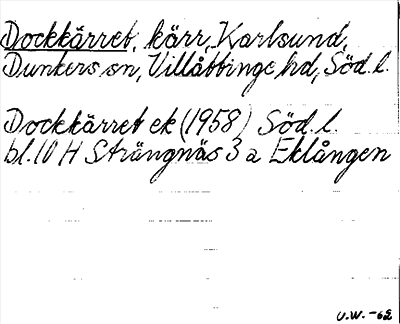 Dockkärret, kärr, Karlsund,
Dunkers sn, Villåttinge hd, Söd.l.
Dockkärret ek (1958) Söd.l.
bl.10 H Strängnäs 3 a Eklången
U.W. -62